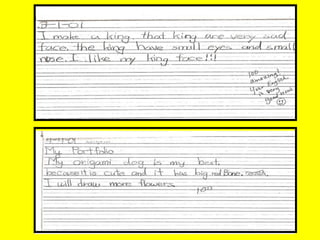 7-1-01
I make a king. that king are very sad
face. the king have small eyes and small
nose. I like my king face!!!
100
Amazing!
Your English
is very
good
My Portfolio
My origami dog is my best,
because it is cute and it has big red Bone.
I will draw more flowers.
100